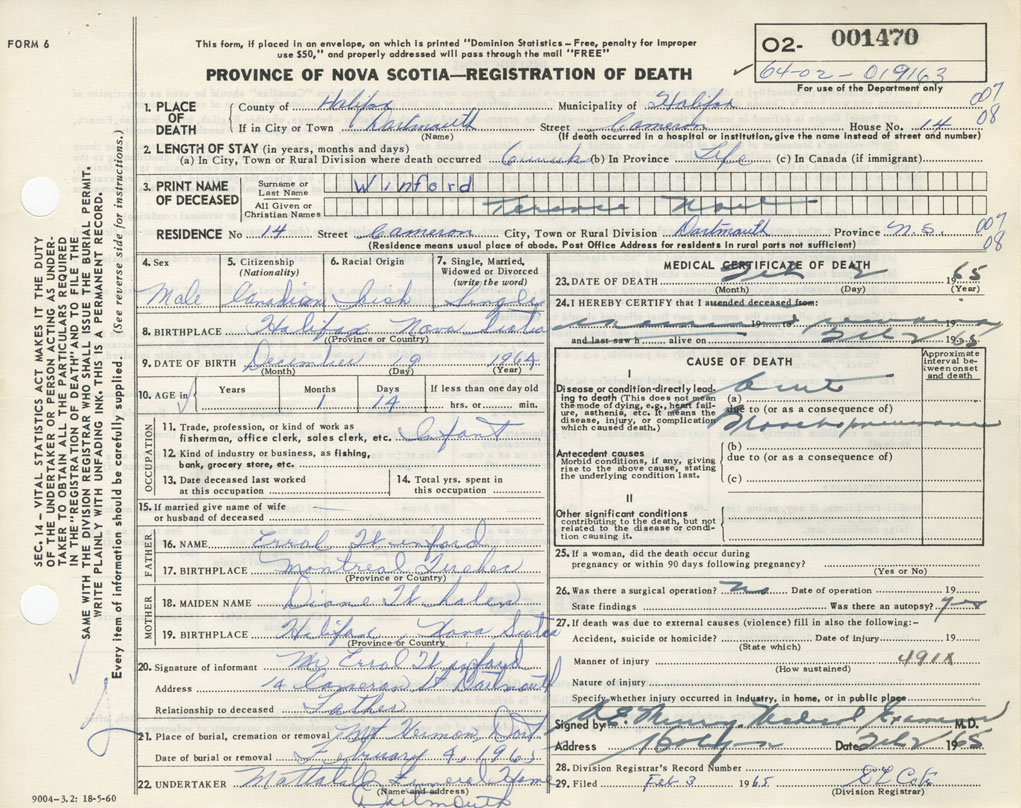 FORM 6
This form, if placed in an envelope, on which is printed "Dominion Statistics – Free, penalty for improper
use $50," and properly addressed will pass through the mail "FREE"
PROVINCE OF NOVA SCOTIA—REGISTRATION OF DEATH
02- 001470
64-02-019163
For use of the Department only
1. PLACE OF DEATH
County of Halifax Municipality of Halifax 007
If in City or Town Dartmouth Street Cameron House No. 14 08
(Name) (If death occurred in a hospital or institution, give the name instead of street and number)
2. LENGTH OF STAY (in years, months and days)
(a) In City, Town or Rural Division where death occurred 6 weeks (b) In Province Life (c) In Canada (if immigrant)
3. PRINT NAME OF DECEASED
Surname or Last Name Winford
All Given or Christian Names Terence Noel
RESIDENCE No. 14 Street Cameron City, Town or Rural Division Dartmouth Province N.S. 007
(Residence means usual place of abode. Post Office Address for residents in rural parts not sufficient) 08
4. Sex Male
5. Citizenship (Nationality) Canadian
6. Racial Origin Irish
7. Single, Married, Widowed or Divorced (write the word) Single
8. BIRTHPLACE Halifax Nova Scotia
(Province or Country)
9. DATE OF BIRTH December 19 1964
(Month) (Day) (Year)
10. AGE in Years Months 1 Days 14 If less than one day old hrs. or min.
OCCUPATION
11. Trade, profession, or kind of work as fisherman, office clerk, sales clerk, etc. Infant
12. Kind of industry or business, as fishing, bank, grocery store, etc.
13. Date deceased last worked at this occupation
14. Total yrs. spent in this occupation
15. If married give name of wife or husband of deceased
FATHER
16. NAME Errol Winford
17. BIRTHPLACE Montreal Quebec
(Province or Country)
MOTHER
18. MAIDEN NAME Diane Whalen
19. BIRTHPLACE Halifax Nova Scotia
(Province or Country)
20. Signature of informant Mr Errol Winford
Address 14 Cameron St Dartmouth
Relationship to deceased Father
21. Place of burial, cremation or removal Mt Hermon Dart
Date of burial or removal February 4, 1965
22. UNDERTAKER Mattatall Funeral Home
(Name and address)
Dartmouth
MEDICAL CERTIFICATE OF DEATH
23. DATE OF DEATH Feb 2 1965
(Month) (Day) (Year)
24. I HEREBY CERTIFY that I attended deceased from:
19 to
and last saw h alive on Feb 2 1965
CAUSE OF DEATH
Approximate interval between onset and death
I
Disease or condition directly leading to death (This does not mean the mode of dying, e.g., heart failure, asthenia, etc. It means the disease, injury, or complication which caused death.)
(a) Acute
due to (or as a consequence of)
Bronchopneumonia
Antecedent causes
Morbid conditions, if any, giving rise to the above cause, stating the underlying condition last.
(b)
due to (or as a consequence of)
(c)
II
Other significant conditions
contributing to the death, but not related to the disease or condition causing it.
25. If a woman, did the death occur during pregnancy or within 90 days following pregnancy?
(Yes or No)
26. Was there a surgical operation? No Date of operation 19
State findings Was there an autopsy? yes
27. If death was due to external causes (violence) fill in also the following:–
Accident, suicide or homicide? Date of injury 19
(State which)
Manner of injury 491X
(How sustained)
Nature of injury
Specify whether injury occurred in industry, in home, or in public place
Signed by Medical Examiner M.D.
Address Date Feb 2 1965
28. Division Registrar's Record Number
29. Filed Feb 3 1965
(Division Registrar)
SEC. 14 – VITAL STATISTICS ACT MAKES IT THE DUTY
OF THE UNDERTAKER OR PERSON ACTING AS UNDER-
TAKER TO OBTAIN ALL THE PARTICULARS REQUIRED
IN THE "REGISTRATION OF DEATH" AND TO FILE THE
SAME WITH THE DIVISION REGISTRAR WHO SHALL ISSUE THE BURIAL PERMIT.
WRITE PLAINLY WITH UNFADING INK. THIS IS A PERMANENT RECORD.
Every item of information should be carefully supplied. (See reverse side for instructions.)
9004-3.2: 18-5-60